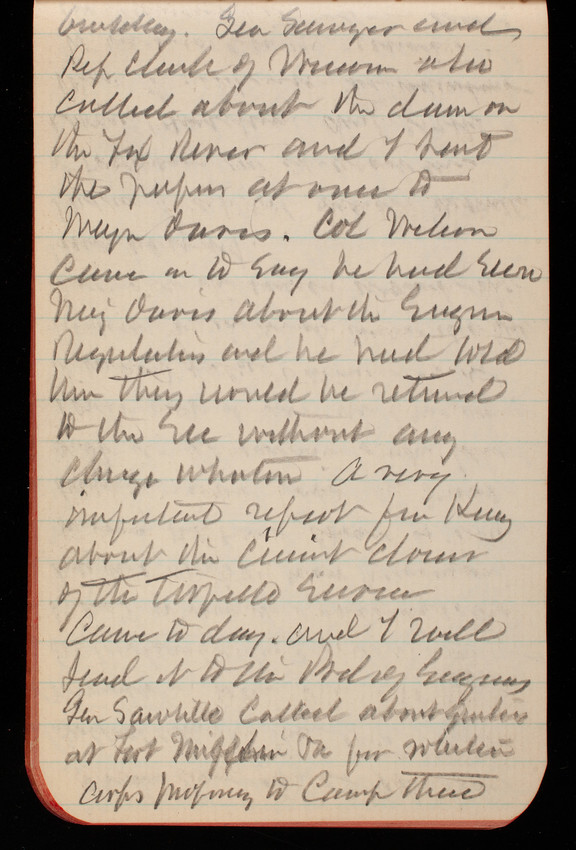 Gen Sawyer and
Rep Clark of Wiscon who
called about the dam on
the Fox River and I sent
the papers at once to
Maj Davis. Col Wilson
Came in to say he had seen
Maj Davis about the Engin
Regulations and he had told
him they would be returned
to the Sec without any
change whatever A very
important report from King
about the
of the Torpedo
Came to day. and I will
send it to the Bd of Engineers
Gen Sawtelle Called about
at Fort Mifflin Pa for
corps proposing to Camp there